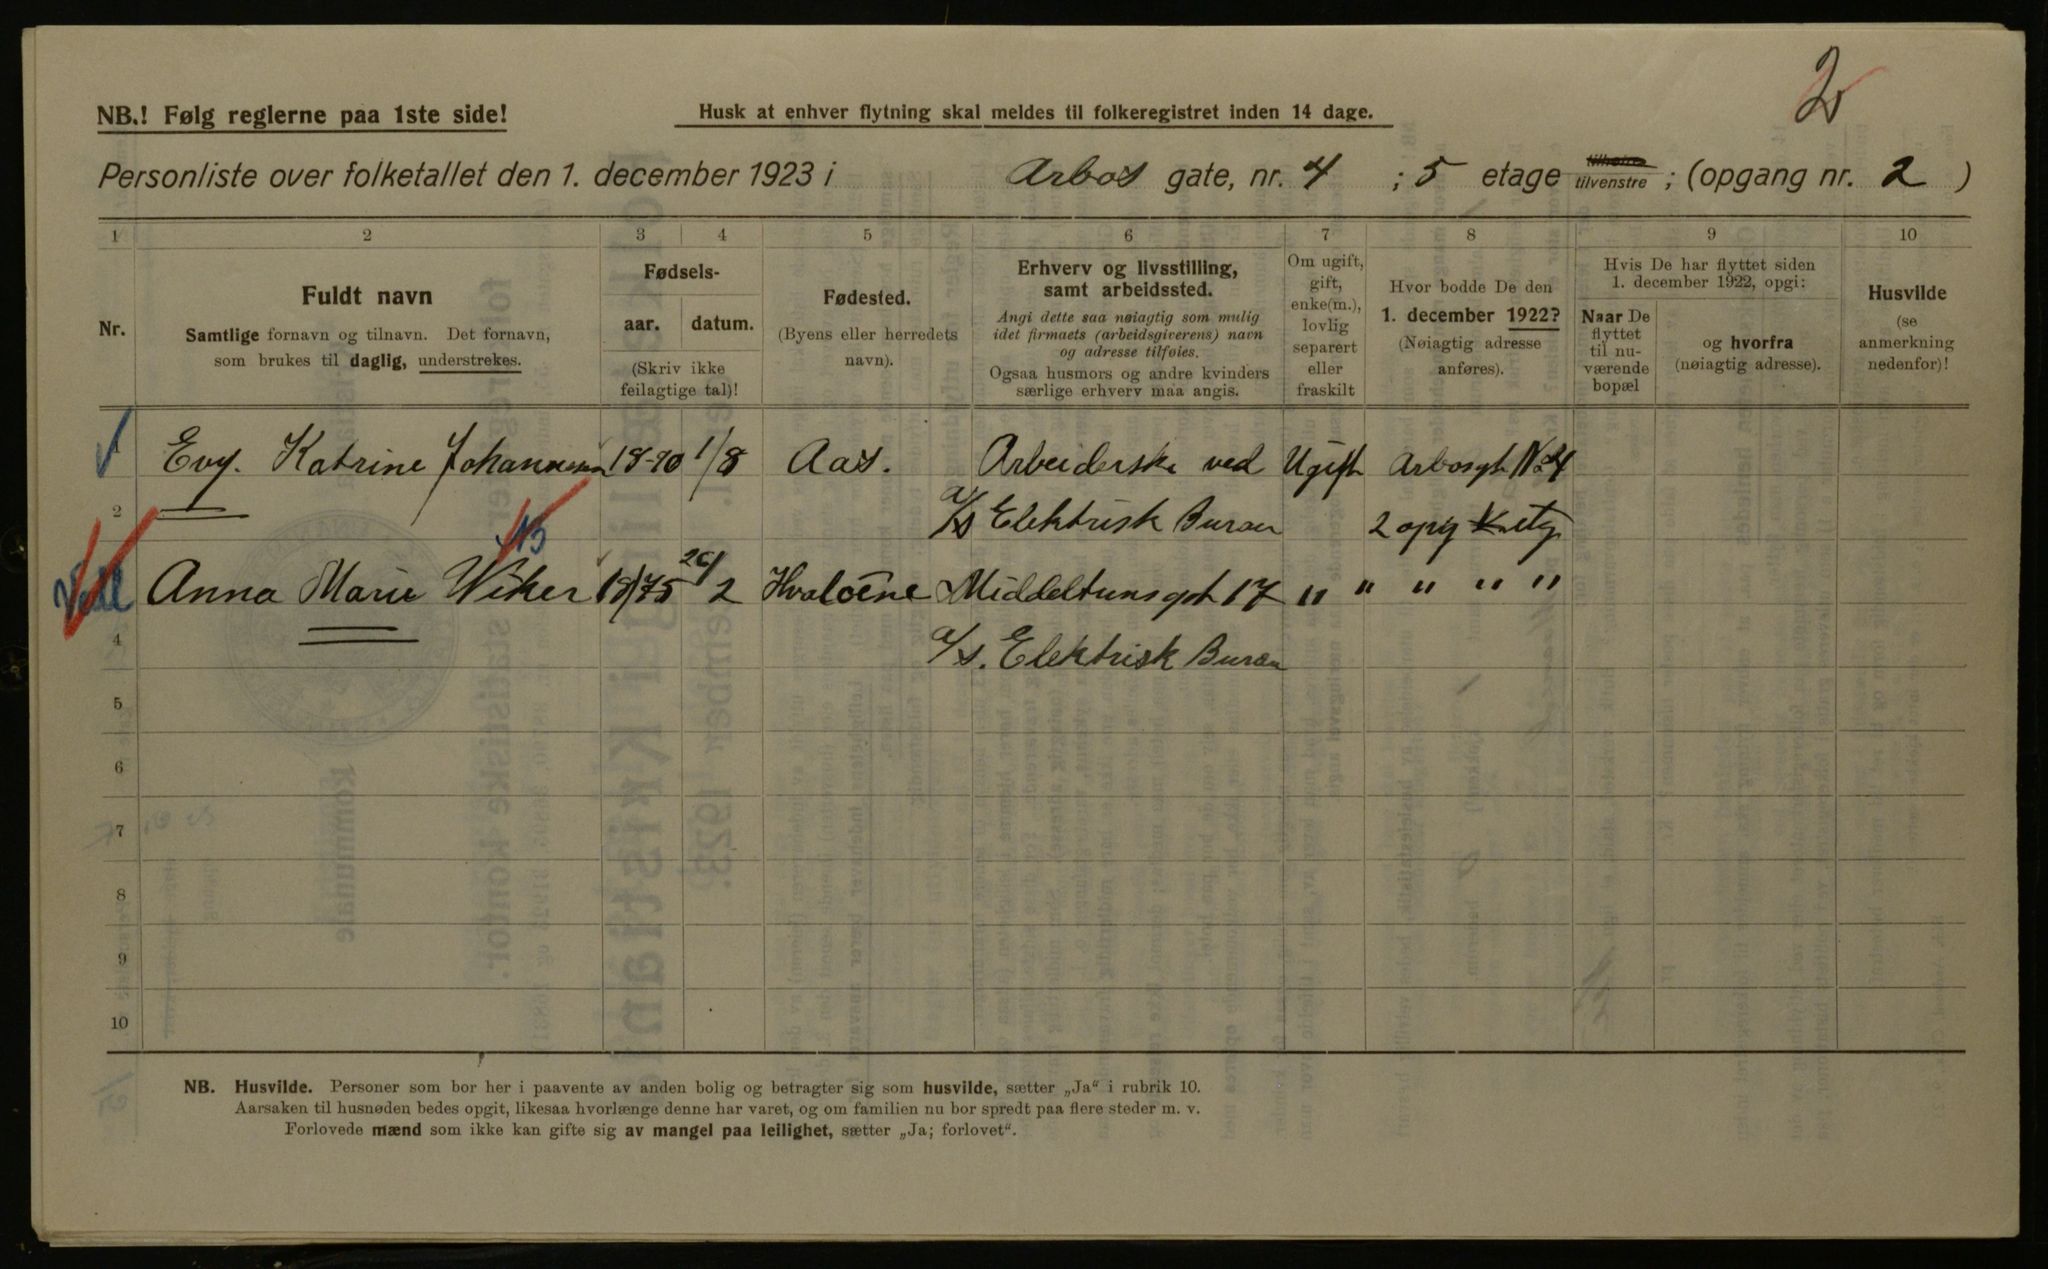 2
NB.! Følg reglerne paa 1ste side!
Husk at enhver flytning skal meldes til folkeregistret inden 14 dage.
Personliste over folketallet den 1. december 1923 i Arbos gate, nr. 4 ; 5 etage tilhøire tilvenstre ; (opgang nr. 2 )
1 2 3 4 5 6 7 8 9 10
Nr.
Fuldt navn
Samtlige fornavn og tilnavn. Det fornavn,
som brukes til daglig, understrekes.
Fødsels-
aar. datum.
(Skriv ikke
feilagtige tal)!
Fødested.
(Byens eller herredets
navn).
Erhverv og livsstilling,
samt arbeidssted.
Angi dette saa nøiagtig som mulig
idet firmaets (arbeidsgiverens) navn
og adresse tilføies.
Ogsaa husmors og andre kvinders
særlige erhverv maa angis.
Om ugift,
gift,
enke(m.),
lovlig
separert
eller
fraskilt
Hvor bodde De den
1. december 1922?
(Nøiagtig adresse
anføres).
Hvis De har flyttet siden
1. december 1922, opgi:
Naar De
flyttet
til nu-
værende
bopæl
og hvorfra
(nøiagtig adresse).
Husvilde
(se
anmerkning
nedenfor)!
1 Evy. Katrine Johannesen 18-90 1/8 Aas. Arbeiderske ved Ugift Arbosgt No 4
2 a/s Elektrisk Bureau 2 opg etg
Anna Marie Wiker 1875 26/2 Hvaløene Middeltunsgt 17 " " " " "
4 a/s. Elektrisk Bureau
5
6
7
8
9
10
NB. Husvilde. Personer som bor her i paavente av anden bolig og betragter sig som husvilde, sætter „Ja“ i rubrik 10.
Aarsaken til husnøden bedes opgit, likesaa hvorlænge denne har varet, og om familien nu bor spredt paa flere steder m. v.
Forlovede mænd som ikke kan gifte sig av mangel paa leilighet, sætter „Ja; forlovet“.